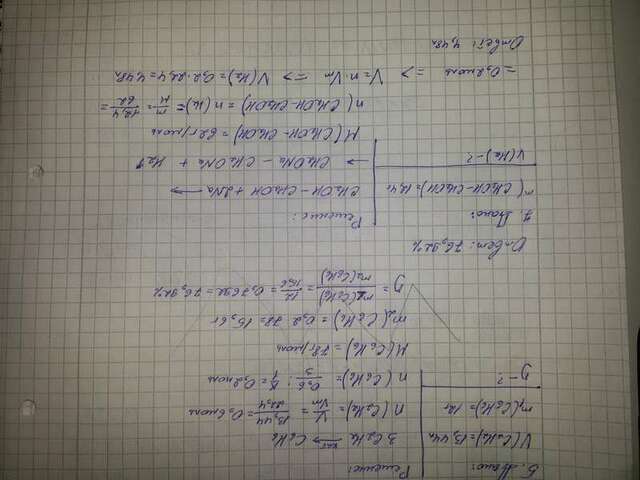 5. Дано:
V(C2H2)=13,44л
m(C6H6)=12г
η-?
Решение:
3C2H2 кат→ C6H6
n(C2H2)= V/Vm = 13,44/22,4 =0,6моль
n(C6H6)= 0,6/3 ; x/1 =0,2моль
M(C6H6)=78г/моль
m(C6H6)=0,2·78=15,6г
η= m2(C6H6)/m2(C6H6) = 12/15,6 =0,7692=76,92%
Ответ: 76,92%
7. Дано:
m(CH2OH-CH2OH)=12,4г
V(H2)-?
Решение:
CH2OH-CH2OH+2Na →
→ CH2ONa-CH2ONa + H2↑
M(CH2OH-CH2OH)=62г/моль
n(CH2OH-CH2OH)=n(H2)= m/M = 12,4/62 =
=0,2моль => V=n·Vm => V(H2)=0,2·22,4=4,48л
Ответ: 4,48л